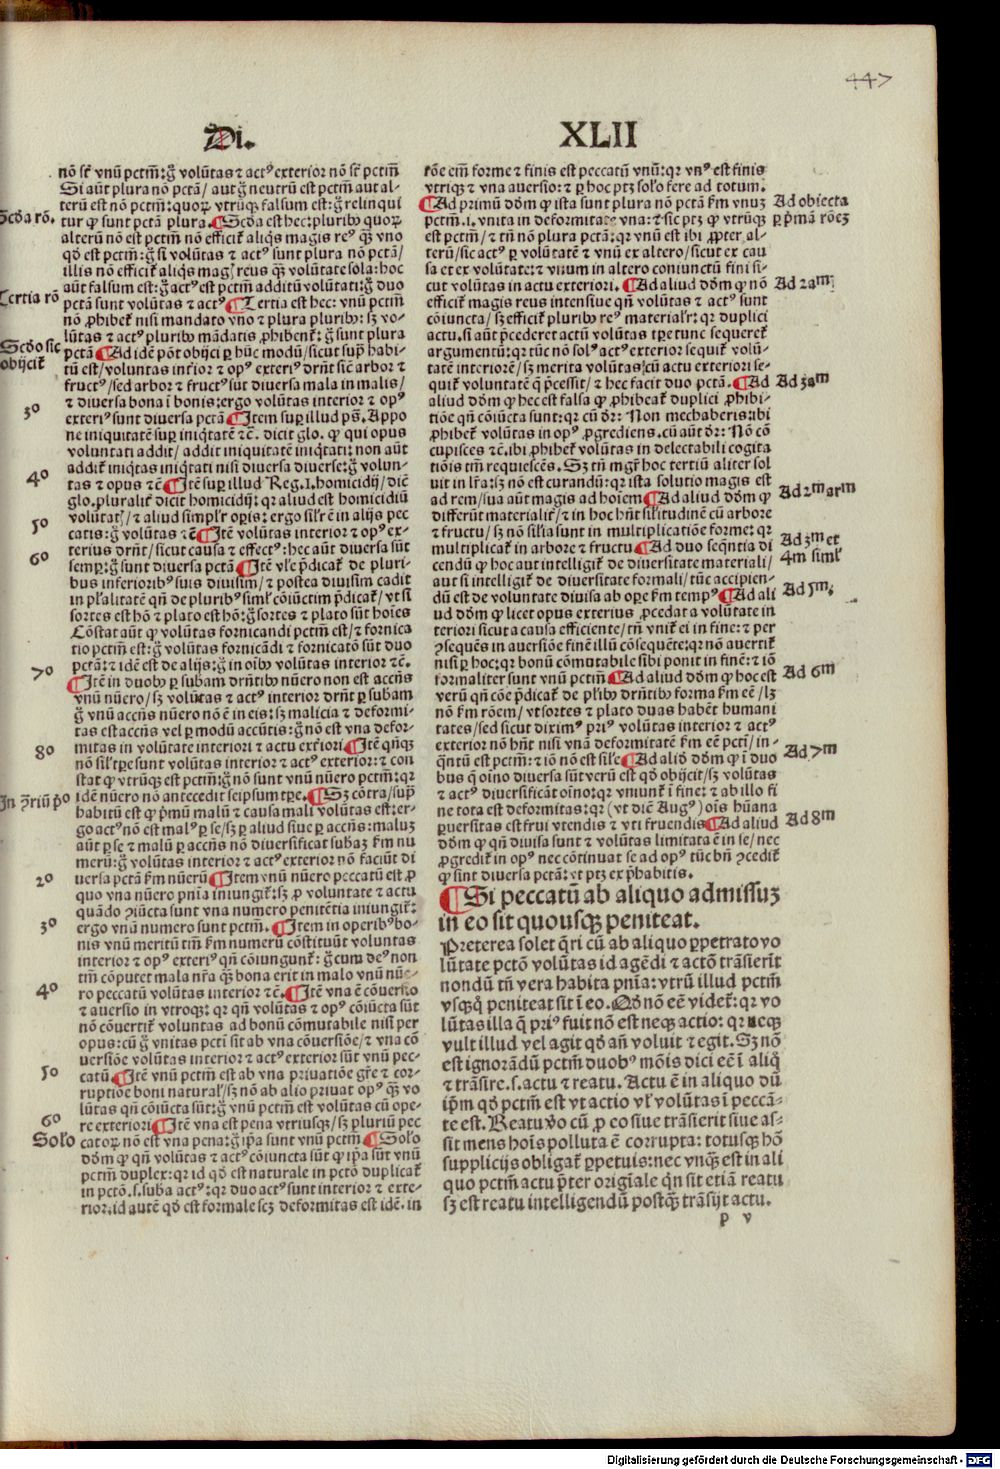 447
Di.
XLII
nõ st̃ vnũ pctm̃: g̃ volũtas ⁊ actꝰ exterior nõ st̃ pctm̃
Si aũt plura nõ pctã/ aut g̃ neutrũ est pctm̃ aut al-
terũ est nõ pctm̃: quoꝝ vtrũqꝫ falsum est: g̃ relinqui
tur ꝙ sunt pctã plura. ¶Scđa est hec: pluribꝰ quoꝝ
alterũ nõ est pctm̃ nõ efficit̃ aliq̃s magis reꝰ q̃ꝫ vno
qđ est pctm̃: g̃ si volũtas ⁊ actꝰ sunt plura nõ pctã/
illis nõ efficit̃ aliq̃s magꝭ reus q̃ꝫ volũtate sola: hoc
aũt falsum est: g̃ actꝰ est pctm̃ additũ volũtati: g̃ duo
pctã sunt volũtas ⁊ actꝰ ¶Tertia est hec: vnũ pctm̃
nõ ꝓhibet̃ nisi mandato vno ⁊ plura pluribꝰ: sꝫ vo-
lũtas ⁊ actꝰ pluribꝰ mãdatis ꝓhibent̃: g̃ sunt plura
pctã ¶Ad idẽ põt obijci ꝑ hũc modũ/ sicut supͣ habi-
tũ est/ voluntas int̃ior ⁊ opꝰ exteriꝰ dr̃nt sicẽ arbor ⁊
fructꝰ/ sed arbor ⁊ fructꝰ sũt diuersa mala in malis/
⁊ diuersa bona ĩ bonis: ergo volũtas interior ⁊ opꝰ
exteriꝰ sunt diuersa pctã ¶Item suꝑ illud ps̃. Appo
ne iniquitatẽ suꝑ iniq̃tatẽ ⁊c̃. dicit glo. ꝙ qui opus
voluntati addit/ addit iniquitatẽ iniq̃tati: non aũt
addit̃ iniq̃tas iniq̃tati nisi diuersa diuerse: g̃ volun-
tas ⁊ opus ⁊c̃ ¶Itẽ suꝑ illud Reg. I. homicidij/ diẽ
glo. pluralit̃ dicit homicidij: qr aliud est homicidiũ
volũtatꝭ/ ⁊ aliud simplr̃ oꝑis: ergo silr̃ ẽ in alijs pec
catis: g̃ volũtas ⁊c̃ ¶Itẽ volũtas interior ⁊ opꝰ ex-
terius dr̃nt/ sicut causa ⁊ effectꝰ: hec aũt diuersa sũt
semꝑ: g̃ sunt diuersa pctã ¶Itẽ vl̃e p̃dicat̃ de pluri-
bus inferioribꝰ suis diuisim/ ⁊ postea diuisim cadit
in pl̃alitatẽ qñ de pluribꝰ siml̃ cõiũctim p̃dicat̃/ vt si
sortes est hõ ⁊ plato est hõ: g̃ sortes ⁊ plato sũt hoĩes
Cõstat aũt ꝙ volũtas fornicandi pctm̃ est/ ⁊ fornica
tio pctm̃ est: g̃ volũtas fornicãdi ⁊ fornicatõ sũt duo
pctã: ⁊ idẽ est de alijs: g̃ in oĩbꝰ volũtas interior ⁊c̃.
¶Itẽ in duobꝰ ꝑ subam dr̃ntibꝰ nũero non est accñs
vnũ nũero/ sꝫ volũtas ⁊ actꝰ interior dr̃nt ꝑ subam
g̃ vnũ accñs nũero nõ ẽ in eis: sꝫ malicia ⁊ deformi-
tas est accñs vel ꝑ modũ accñtis: g̃ nõ est vna defor-
mitas in volũtate interiori ⁊ actu ext̃iori ¶Itẽ qñqꝫ
nõ sil̃ tꝑe sunt volũtas interior ⁊ actꝰ exterior: ⁊ con
stat ꝙ vtrũqꝫ est pctm̃: g̃ nõ sunt vnũ nũero pctm̃: qr
idẽ nũero nõ antecedit seipsum tꝑe. ¶Sꝫ cõtra/ supͣ
habitũ est ꝙ p̃mũ malũ ⁊ causa mali volũtas est: er-
go actꝰ nõ est malꝰ ꝑ se/ sꝫ ꝑ aliud siue ꝑ accñs: maluꝫ
aũt ꝑ se ⁊ malũ ꝑ accñs nõ diuersificat subaꝫ ẜm nu
merũ: g̃ volũtas interior ⁊ actꝰ exterior nõ faciũt di
uersa pctã ẜm nũerũ ¶Item vnũ nũero peccatũ est ꝓ
quo vna nũero pnĩa iniungit̃: sꝫ ꝓ voluntate ⁊ actu
quãdo ꝯiũcta sunt vna numero penitẽtia iniungit̃:
ergo vnũ numero sunt pctm̃. ¶Item in operibꝰ bo-
nis vnũ meritũ tm̃ ẜm numerũ cõstituũt voluntas
interior ⁊ opꝰ exteriꝰ qñ cõiungunt̃: g̃ cum deꝰ non
tm̃ cõputet mala nr̃a q̃ꝫ bona erit in malo vnũ nũe-
ro peccatũ volũtas interior ⁊c̃. ¶Itẽ vna ẽ cõuersio
⁊ auersio in vtroqꝫ: qr qñ volũtas ⁊ opꝰ cõiũcta sũt
nõ cõuertit̃ voluntas ad bonũ cõmutabile nisi per
opus: cũ g̃ vnitas pcti sit ab vna cõuersiõe/ ⁊ vna cõ
uersiõe volũtas interior ⁊ actꝰ exterior sũt vnũ pec-
catũ. ¶Itẽ vnũ pctm̃ est ab vna priuatiõe gr̃e ⁊ cor-
ruptiõe boni naturalꝭ/ sꝫ nõ ab alio priuat opꝰ q̃ꝫ vo
lũtas qñ cõiũcta sũt: g̃ vnũ pctm̃ est volũtas cũ ope-
re exteriori ¶Itẽ vna est pena vtriusqꝫ/ sꝫ pluriũ pec
catoꝝ nõ est vna pena: g̃ ip̃a sunt vnũ pctm̃ ¶Solo
dõm ꝙ qñ volũtas ⁊ actꝰ cõiuncta sũt ꝙ ip̃a sũt vnũ
pctm̃ duplex: qr id qđ est naturale in pctõ duplicat̃
in pctõ. s. suba actꝰ: qr duo actꝰ sunt interior ⁊ exte-
rior. id autẽ qđ est formale scꝫ deformitas est idẽ. in
Scđa rõ.
Tertia rõ
Scđo sic
obijcit̃
3º
4º
5º
6º
7º
8º
In ꝯ̃riũ pº
2º
3º
4º
5º
6º
Solo
rõe em̃ forme ⁊ finis est peccatũ vnũ: qr vnꝰ est finis
vtriqꝫ ⁊ vna auersio: ⁊ ꝑ hoc ptꝫ solo fere ad totum.
¶Ad primũ dõm ꝙ ista sunt plura nõ pctã ẜm vnuꝫ
pctm̃. i. vnita in deformitate vna: ⁊ sic ptꝫ ꝙ vtrũqꝫ
est pctm̃/ ⁊ tñ nõ plura pctã: qr vnũ est ibi ꝓpter al-
terũ/ sic actꝰ ꝑ volũtatẽ ⁊ vnũ ex altero/ sicut ex cau
sa et ex volũtate: ⁊ vnum in altero coniunctũ fini si-
cut volũtas in actu exteriori. ¶Ad aliud dõm ꝙ nõ
efficit̃ magis reus intensiue qñ volũtas ⁊ actꝰ sunt
cõiuncta/ sꝫ efficit̃ pluribꝰ reꝰ materialr̃: qr duplici
actu. si aũt p̃cederet actũ volũtas tꝑe tunc sequeret̃
argumentũ: qr tũc nõ solꝰ actꝰ exterior sequit̃ volũ-
tatẽ interiorẽ/ sꝫ merita volũtas cũ actu exteriori se-
quit̃ voluntatẽ q̃ p̃cessit/ ⁊ hec facit duo pctã. ¶Ad
aliud dõm ꝙ hec est falsa ꝙ ꝓhibeat̃ duplici ꝓhibi-
tiõe qñ cõiũcta sunt: qr cũ dr̃: Non mechaberis: ibi
ꝓhibet̃ volũtas in opꝰ ꝓgrediens. cũ aũt dr̃: Nõ cõ
cupisces ⁊c̃. ibi ꝓhibet̃ volũtas in delectabili cogita
tiõis tm̃ requiescẽs. Sꝫ tñ mgr̃ hoc tertiũ aliter sol
uit in lr̃a: sꝫ nõ est curandũ: qr ista solutio magis est
ad rem/ sua aũt magis ad hoĩem ¶Ad aliud dõm ꝙ
differũt materialit̃/ ⁊ in hoc hñt sil̃itudinẽ cũ arbore
⁊ fructu/ sꝫ nõ sil̃ia sunt in multiplicatiõe forme: qr
multiplicat̃ in arbore ⁊ fructu ¶Ad duo seq̃ntia di
cendũ ꝙ hoc aut intelligit̃ de diuersitate materiali/
aut si intelligit̃ de diuersitate formali/ tũc accipien-
dũ est de voluntate diuisa ab oꝑe ẜm tempꝰ ¶Ad ali
ud dõm ꝙ licet opus exterius ꝓcedat a volũtate in
teriori sicut a causa efficiente/ tñ vnit̃ ei in fine: ⁊ per
ꝯsequẽs in auersiõe finẽ illũ cõsequẽte: qr nõ auertit̃
nisi ꝑ hoc: qr bonũ cõmutabile sibi ponit in finẽ: ⁊ iõ
formaliter sunt vnũ pctm̃ ¶Ad aliud dõm ꝙ hoc est
verũ qñ cõe p̃dicat̃ de pl̃ibꝰ dr̃ntibꝰ forma ẜm eẽ/ lꝫ
nõ ẜm rõem/ vt sortes ⁊ plato duas habẽt humani
tates/ sed sicut diximꝰ priꝰ volũtas interior ⁊ actꝰ
exterior nõ hñt nisi vnã deformitatẽ ẜm eẽ pcti/ in-
q̃ntũ est pctm̃: ⁊ iõ nõ est sil̃e ¶Ad aliđ dõm ꝙ ĩ duo
bus q̃ oĩno diuersa sũt verũ est qđ obijcit/ sꝫ volũtas
⁊ actꝰ diuersificãt̃ oĩno: qr vniunt̃ ĩ fine: ⁊ ab illo fi
ne tota est deformitas: qr (vt diẽ Augꝰ) oĩs hũana
ꝑuersitas est frui vtendis ⁊ vti fruendis ¶Ad aliud
dõm ꝙ qñ diuisa sunt ⁊ volũtas limitata ẽ in se/ nec
ꝓgredit̃ in opꝰ nec cõtinuat se ad opꝰ tũc bñ ꝯcedit̃
ꝙ sint diuersa pctã: vt ptꝫ ex p̃habitis.
¶Si peccatũ ab aliquo admissuꝫ
in eo sit quousqꝫ peniteat.
Preterea solet q̃ri cũ ab aliquo ꝑpetrato vo
lũtate pctõ volũtas id agẽdi ⁊ actõ trãsierĩt
nondũ tñ vera habita pnĩa: vtrũ illud pctm̃
vsqꝫq̊ peniteat sit ĩ eo. Qđ nõ eẽ videt̃: qr vo
lũtas illa q̃ priꝰ fuit nõ est neqꝫ actio: qr neqꝫ
vult illud vel agit qđ añ voluit ⁊ egit. Sꝫ nõ
est ignorãdũ pctm̃ duobꝰ mõis dici eẽ ĩ aliq̊
⁊ trãsire. s. actu ⁊ reatu. Actu ẽ in aliquo dũ
ip̃m qđ pctm̃ est vt actio vl̃ volũtas ĩ peccã-
te est. Reatu ꝟo cũ ꝓ eo siue trãsierit siue as-
sit mens hoĩs polluta ẽ corrupta: totusqꝫ hõ
supplicijs obligat̃ ꝑpetuis: nec vnq̃ꝫ est in ali
quo pctm̃ actu p̃ter origĩale qñ sit etiã reatu
sꝫ est reatu intelligendũ postq̃ꝫ trãsijt actu.
p v
Ad obiecta
ꝑ p̃mã rõeꝫ
Ad 2am
Ad 3am
Ad 2m arm
Ad 3m et
4m siml̃
Ad 5m.
Ad 6m
Ad 7m
Ad 8m
Digitalisierung gefördert durch die Deutsche Forschungsgemeinschaft - DFG